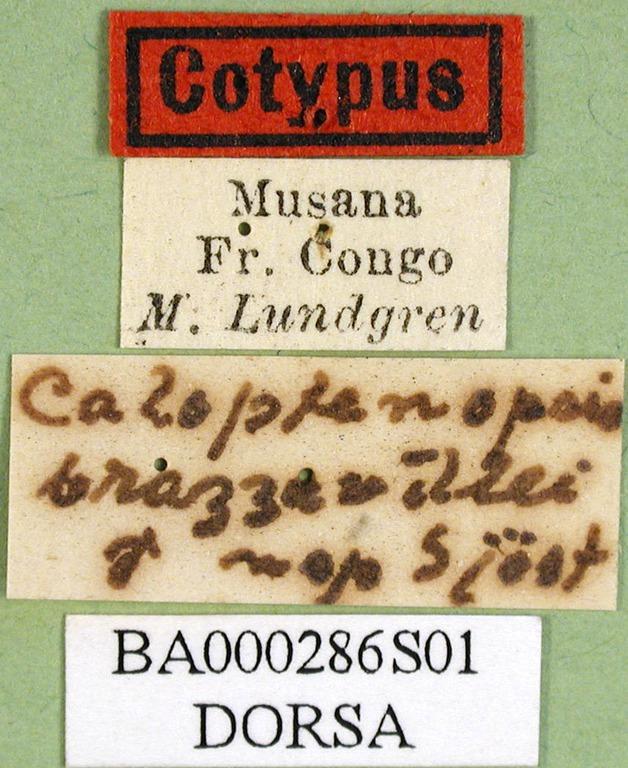 Cotypus
Musana
Fr. Congo
M. Lundgren
Caloptenopsis
brazzavillei
♂ n sp Sjöst
BA000286S01
DORSA